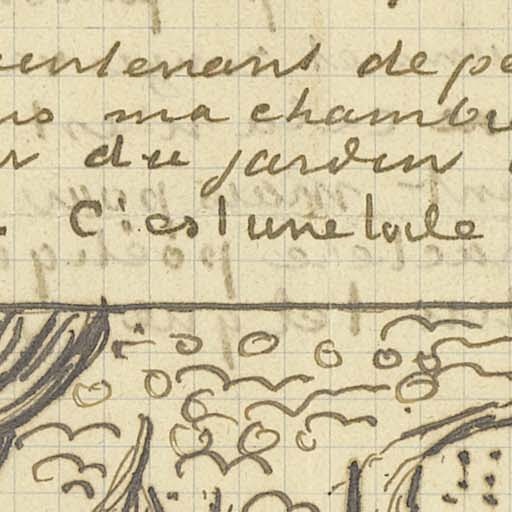 maintenant de pe
ns ma chambre
r du jardin
. C'est une toile